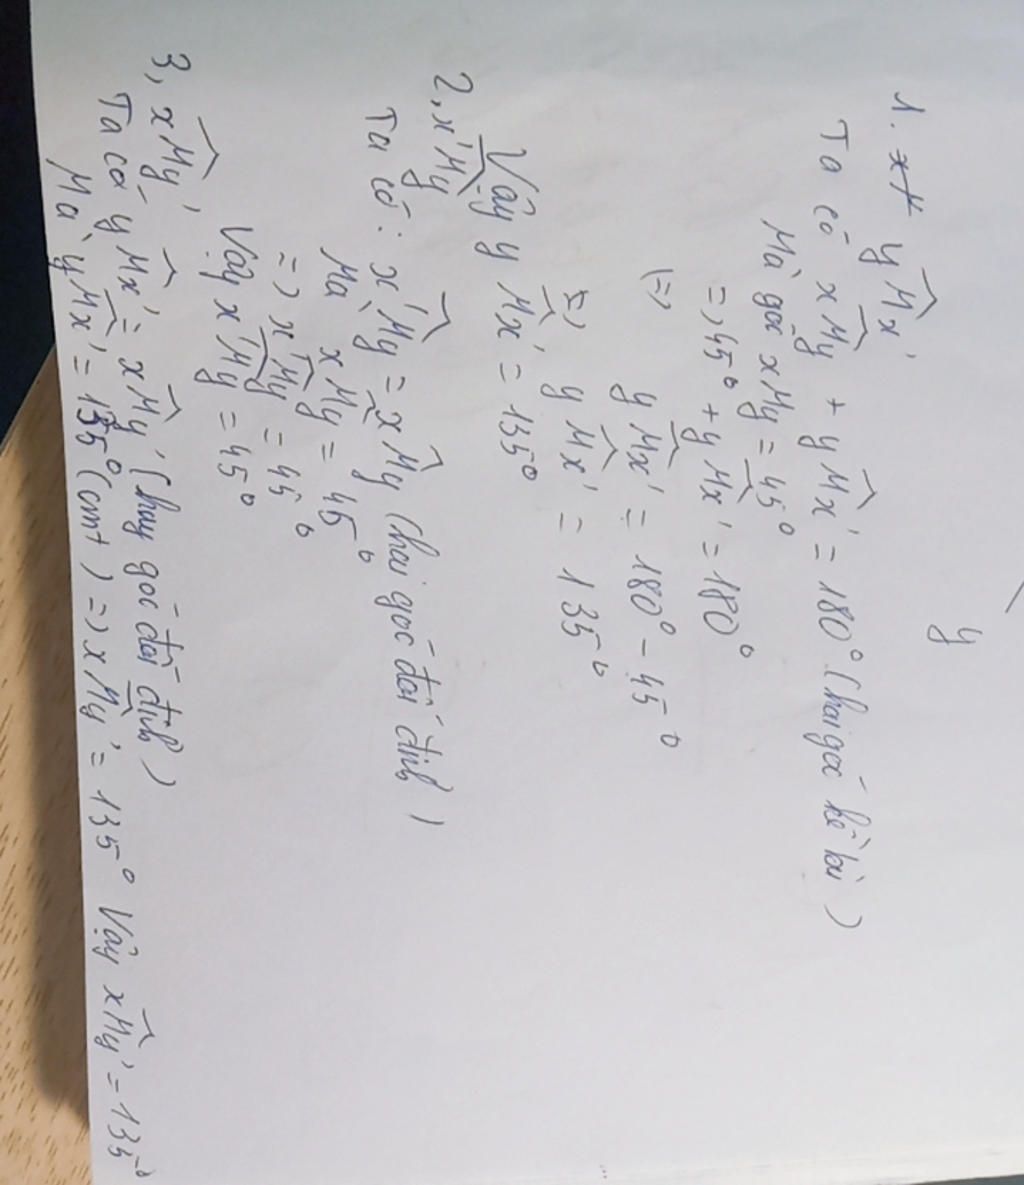 y
1. yMx'
Ta có xMy + yMx' = 180° (hai góc kề bù)
Mà góc xMy = 45°
=> 45° + yMx' = 180°
(=) yMx' = 180° - 45°
=> yMx' = 135°
Vậy yMx' = 135°
2, x'My'
Ta có: x'My' = xMy (hai góc đối đỉnh)
Mà xMy = 45°
=) x'My' = 45°
Vậy x'My' = 45°
3, xMy'
Ta có yMx' = xMy' (hay góc đối đỉnh)
Mà yMx' = 135° (cmt) =) xMy' = 135° Vậy xMy' = 135°